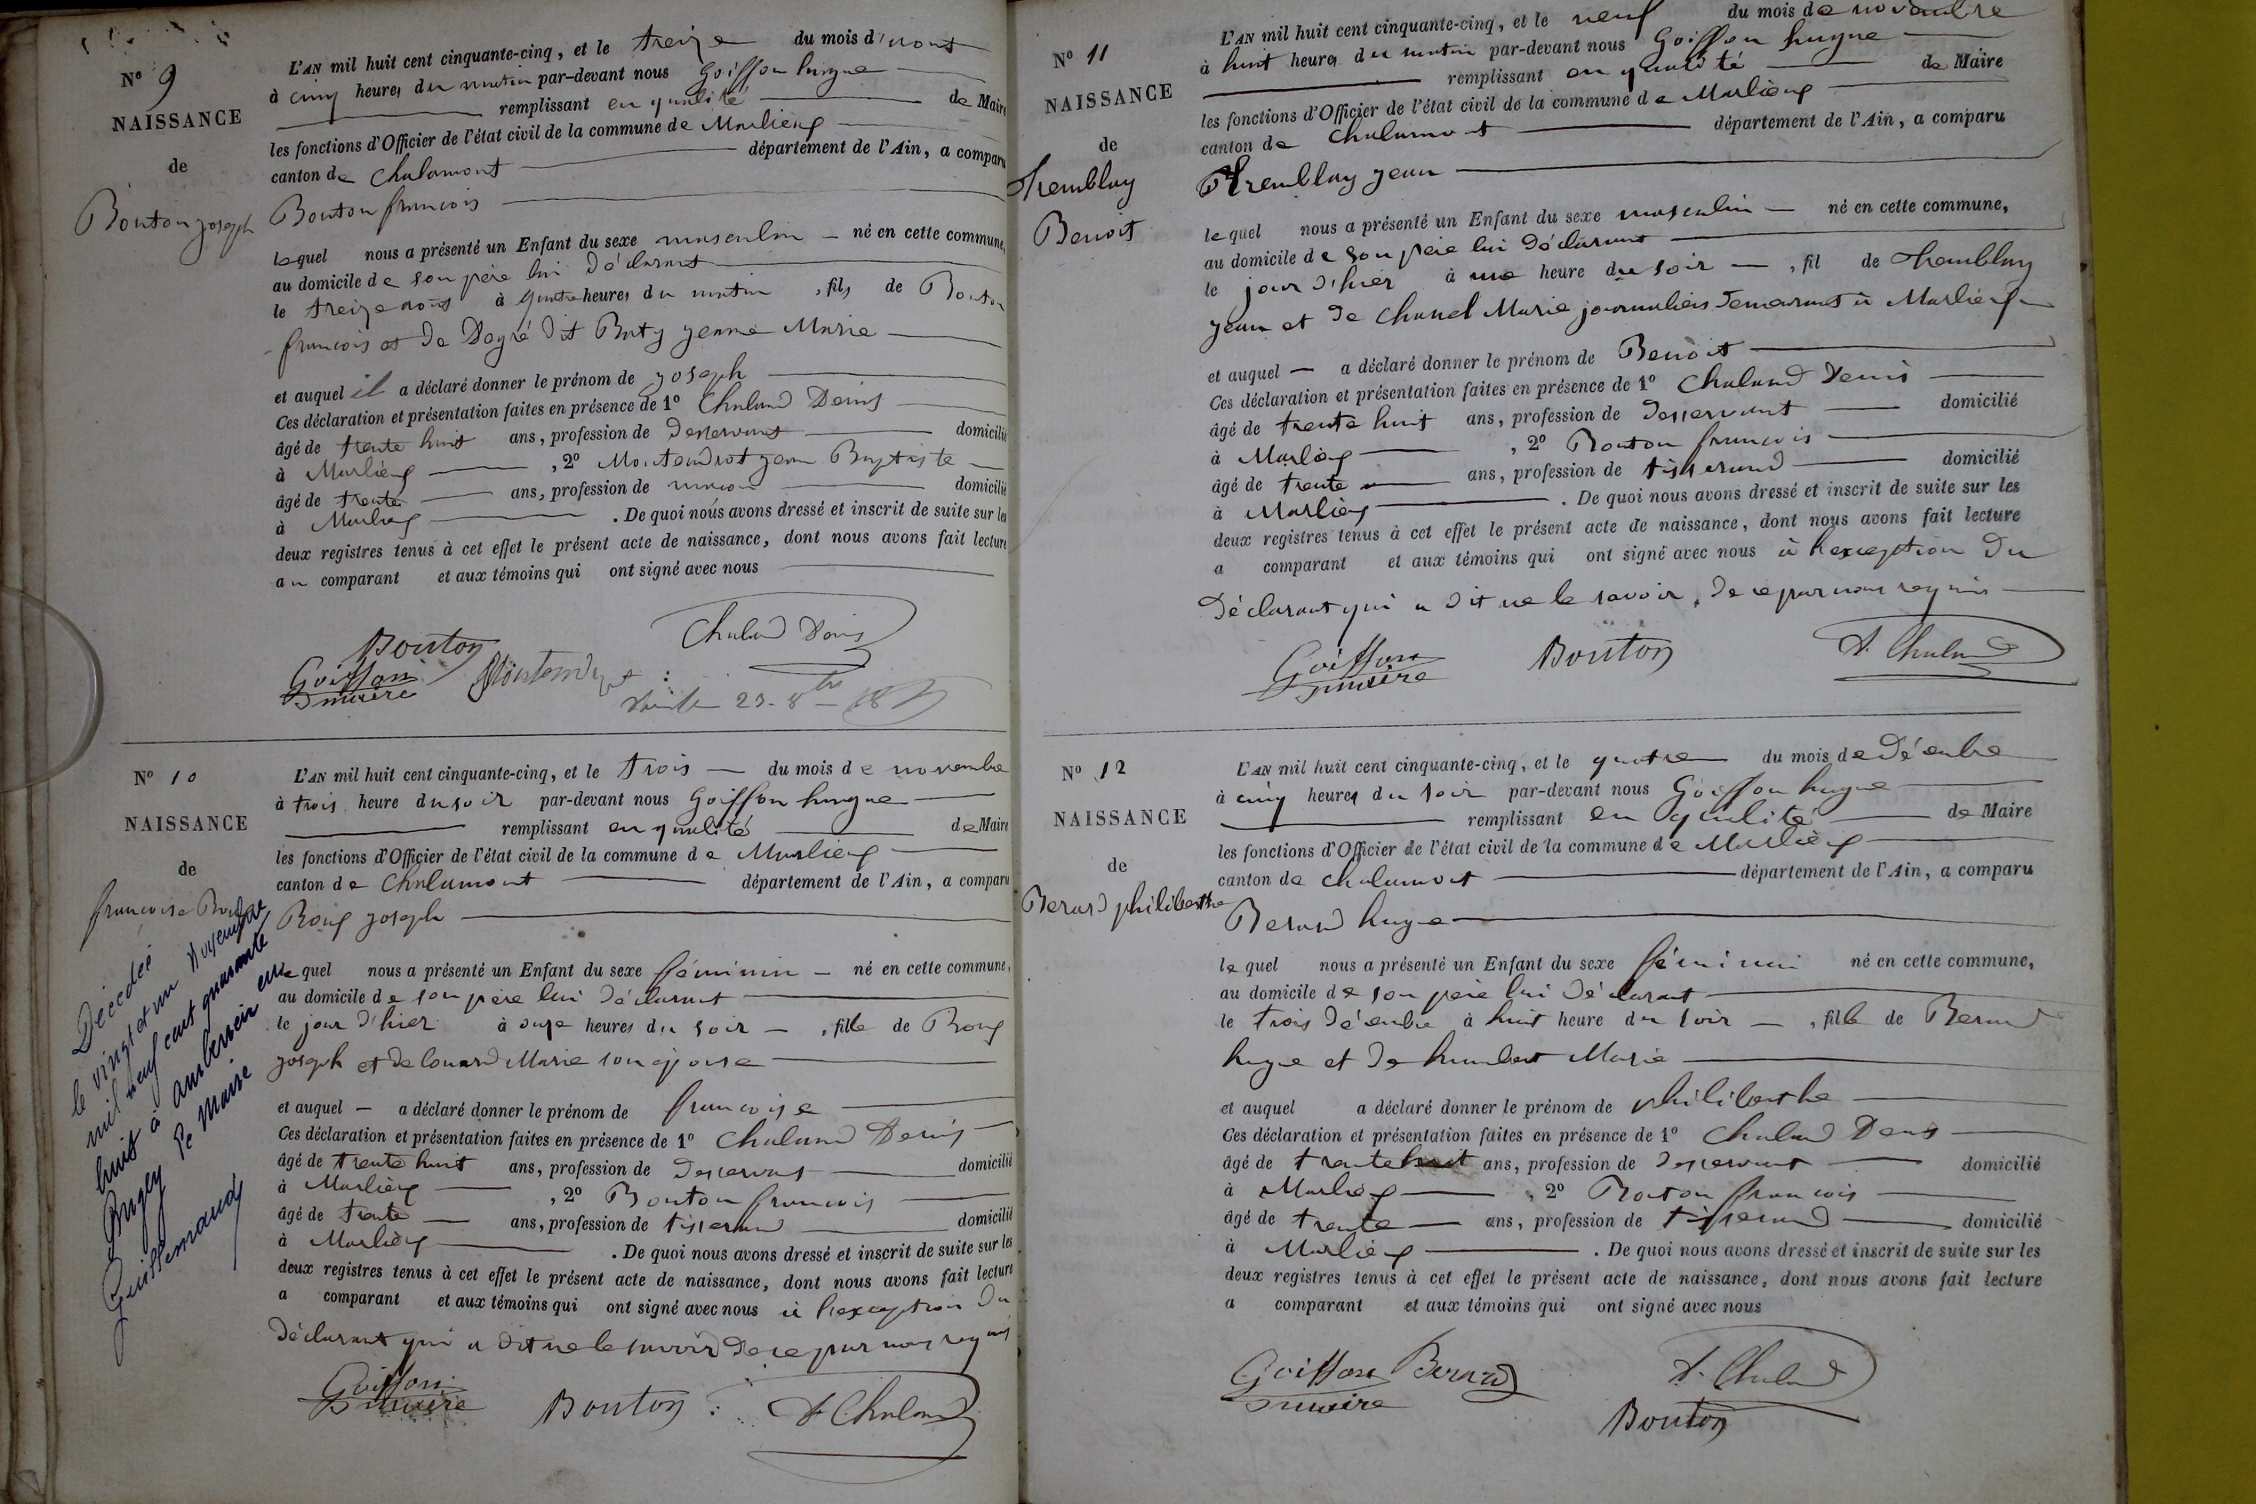 N° 9
NAISSANCE
de
Bouton joseph
L'AN mil huit cent cinquante-cinq, et le treize du mois d'aout
à cinq heures du matin par-devant nous Goiffon hugue
remplissant en qualité de Maire
les fonctions d'Officier de l'état civil de la commune de Marlieux
canton de Chalamont département de l'Ain, a comparu
Bouton francois
lequel nous a présenté un Enfant du sexe masculin né en cette commune,
au domicile de son père lui déclarant
le treize aout à quatre heures du matin, fils de Bouton
francois et de Degré dit Buty jeanne Marie
et auquel il a déclaré donner le prénom de joseph
Ces déclaration et présentation faites en présence de 1° Chaland Denis
âgé de trente huit ans, profession de desservant domicilié
à Marlieux, 2° Montendrot jean Baptiste
âgé de trente ans, profession de macon domicilié
à Marlieux. De quoi nous avons dressé et inscrit de suite sur les
deux registres tenus à cet effet le présent acte de naissance, dont nous avons fait lecture
au comparant et aux témoins qui ont signé avec nous
Chaland Denis
Bouton
Goiffon maire
N° 10
NAISSANCE
de
francoise
Décédée
le vingt et un
mil neuf cent quarante
huit à Ambérieu en
Bugey le Maire
L'AN mil huit cent cinquante-cinq, et le trois du mois de novembre
à trois heure du soir par-devant nous Goiffon hugue
remplissant en qualité de Maire
les fonctions d'Officier de l'état civil de la commune de Marlieux
canton de Chalamont département de l'Ain, a comparu
joseph
lequel nous a présenté un Enfant du sexe féminin né en cette commune,
au domicile de son père lui déclarant
le jour d'hier à onze heures du soir, fille de
joseph et de Marie son épouse
et auquel a déclaré donner le prénom de francoise
Ces déclaration et présentation faites en présence de 1° Chaland Denis
âgé de trente huit ans, profession de desservant domicilié
à Marlieux, 2° Bouton francois
âgé de trente ans, profession de tisserand domicilié
à Marlieux. De quoi nous avons dressé et inscrit de suite sur les
deux registres tenus à cet effet le présent acte de naissance, dont nous avons fait lecture
a comparant et aux témoins qui ont signé avec nous à l'exception du
déclarant qui a dit ne le savoir de ce par nous requis
Goiffon maire Bouton D. Chaland
N° 11
NAISSANCE
de
Tremblay
Benoit
L'AN mil huit cent cinquante-cinq, et le neuf du mois de novembre
à huit heures du matin par-devant nous Goiffon hugue
remplissant en qualité de Maire
les fonctions d'Officier de l'état civil de la commune de Marlieux
canton de Chalamont département de l'Ain, a comparu
Tremblay jean
lequel nous a présenté un Enfant du sexe masculin né en cette commune,
au domicile de son père lui déclarant
le jour d'hier à une heure du soir, fil de Tremblay
jean et de Chanel Marie journaliers demeurant à Marlieux
et auquel a déclaré donner le prénom de Benoit
Ces déclaration et présentation faites en présence de 1° Chaland Denis
âgé de trente huit ans, profession de desservant domicilié
à Marlieux, 2° Bouton francois
âgé de trente ans, profession de tisserand domicilié
à Marlieux. De quoi nous avons dressé et inscrit de suite sur les
deux registres tenus à cet effet le présent acte de naissance, dont nous avons fait lecture
a comparant et aux témoins qui ont signé avec nous à l'exception du
déclarant qui a dit ne le savoir, de ce par nous requis
Goiffon maire Bouton D. Chaland
N° 12
NAISSANCE
de
Berard philiberthe
L'AN mil huit cent cinquante-cinq, et le quatre du mois de Décembre
à cinq heures du soir par-devant nous Goiffon hugue
remplissant en qualité de Maire
les fonctions d'Officier de l'état civil de la commune de Marlieux
canton de chalamont département de l'Ain, a comparu
Berard hugue
lequel nous a présenté un Enfant du sexe féminin né en cette commune,
au domicile de son père lui déclarant
le trois décembre à huit heure du soir, fille de Berard
hugue et de humbert Marie
et auquel a déclaré donner le prénom de philiberthe
Ces déclaration et présentation faites en présence de 1° Chaland Denis
âgé de trente huit ans, profession de desservant domicilié
à Marlieux, 2° Bouton francois
âgé de trente ans, profession de tisserand domicilié
à Marlieux. De quoi nous avons dressé et inscrit de suite sur les
deux registres tenus à cet effet le présent acte de naissance, dont nous avons fait lecture
a comparant et aux témoins qui ont signé avec nous
Goiffon maire Berard D. Chaland
Bouton